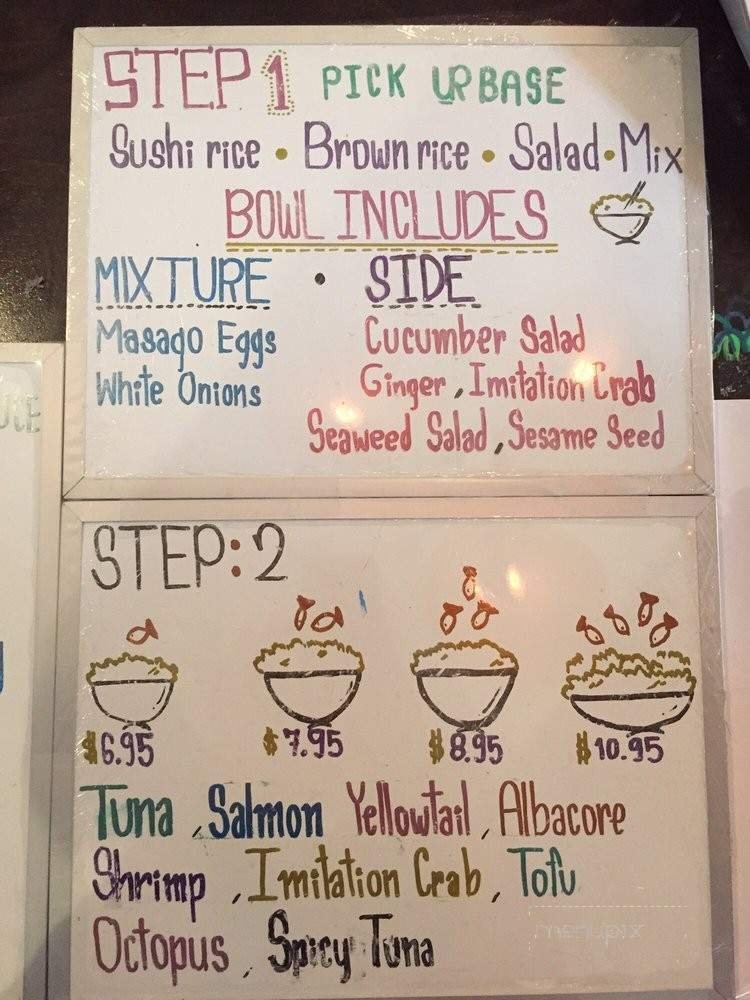 STEP 1 PICK UR BASE
Sushi rice • Brown rice • Salad • Mix
BOWL INCLUDES
MIXTURE • SIDE
Masago Eggs
White Onions
Cucumber Salad
Ginger, Imitation Crab
Seaweed Salad, Sesame Seed
STEP: 2
$6.95 $7.95 $8.95 $10.95
Tuna, Salmon Yellowtail, Albacore
Shrimp, Imitation Crab, Tofu
Octopus, Spicy Tuna
menupix